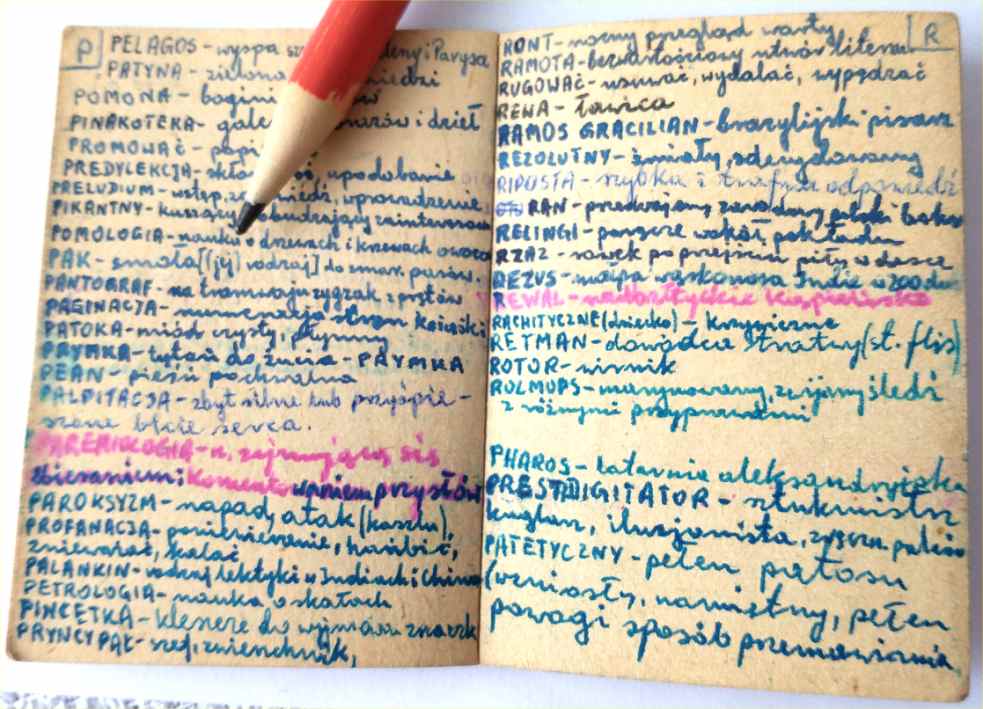 P
PELAGOS - wyspa i Parysa
PATYNA - zielona miedzi
POMONA - bogini
PINAKOTEKA - i dzieł
PROMOWAĆ - popi
PREDYLEKCJA - upodobanie
PRELUDIUM - wstęp, wprowadzenie
PIKANTNY - kuszący
POMOLOGIA - nauka o drzewach i krzewach owoco
PAK - smoła [(jej) rodzaj] do smar.
PANTOGRAF - na tramwaju zygzak z prętów
PAGINACJA - numeracja stron książki
PATOKA - miód czysty, płynny
PRYMKA - tytoń do żucia - PRYMKA
PEAN - pieśń pochwalna
PALPITACJA - zbyt silne lub przyśpie-
szone bicie serca.
PAREMIOLOGIA - n. zajmująca się
zbieraniem i komentowaniem przysłów
PAROKSYZM - napad, atak (kaszlu),
PROFANACJA - hańbić,
znieważać, kalać
PALANKIN - rodzaj lektyki w Indiach i Chinach
PETROLOGIA - nauka o skałach
PINCETKA - do znaczk
PRYNCYPAŁ - szef, zwierzchnik,
R
RONT - nocny przegląd warty
RAMOTA - bezwartościowy utwór literac
RUGOWAĆ - usuwać, wydalać, wypędzać
REWA - ławica
RAMOS GRACILIAN - brazylijski pisarz
REZOLUTNY - śmiały, zdecydowany
RIPOSTA - szybka i trafna odpowiedź
RAN - przedwojenny zawodowy polski bokse
RELINGI - poręcze wokół pokładu
RZAZ - rowek po przejściu piły w desce
REZUS - małpa wąskonosa Indie wschod
REWAL - nadbałtyckie kąpielisko
RACHITYCZNE (dziecko) - krzywiczne
RETMAN - dowódca tratwy (st. flis)
ROTOR - wirnik
ROLMOPS - marynowany, zwijany śledź
z różnymi przyprawami
PHAROS - latarnia aleksandryjska
PRESTIDIGITATOR - sztukmistrz
kuglarz, iluzjonista,
PATETYCZNY - pełen patosu
(wzniosły, namiętny, pełen
powagi sposób przemawiania